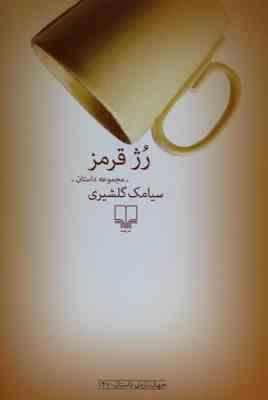 رُژ قرمز
- مجموعه داستان -
سیامک گلشیری
چشمه
جهان تازه‌ی داستان - ۱۴۷